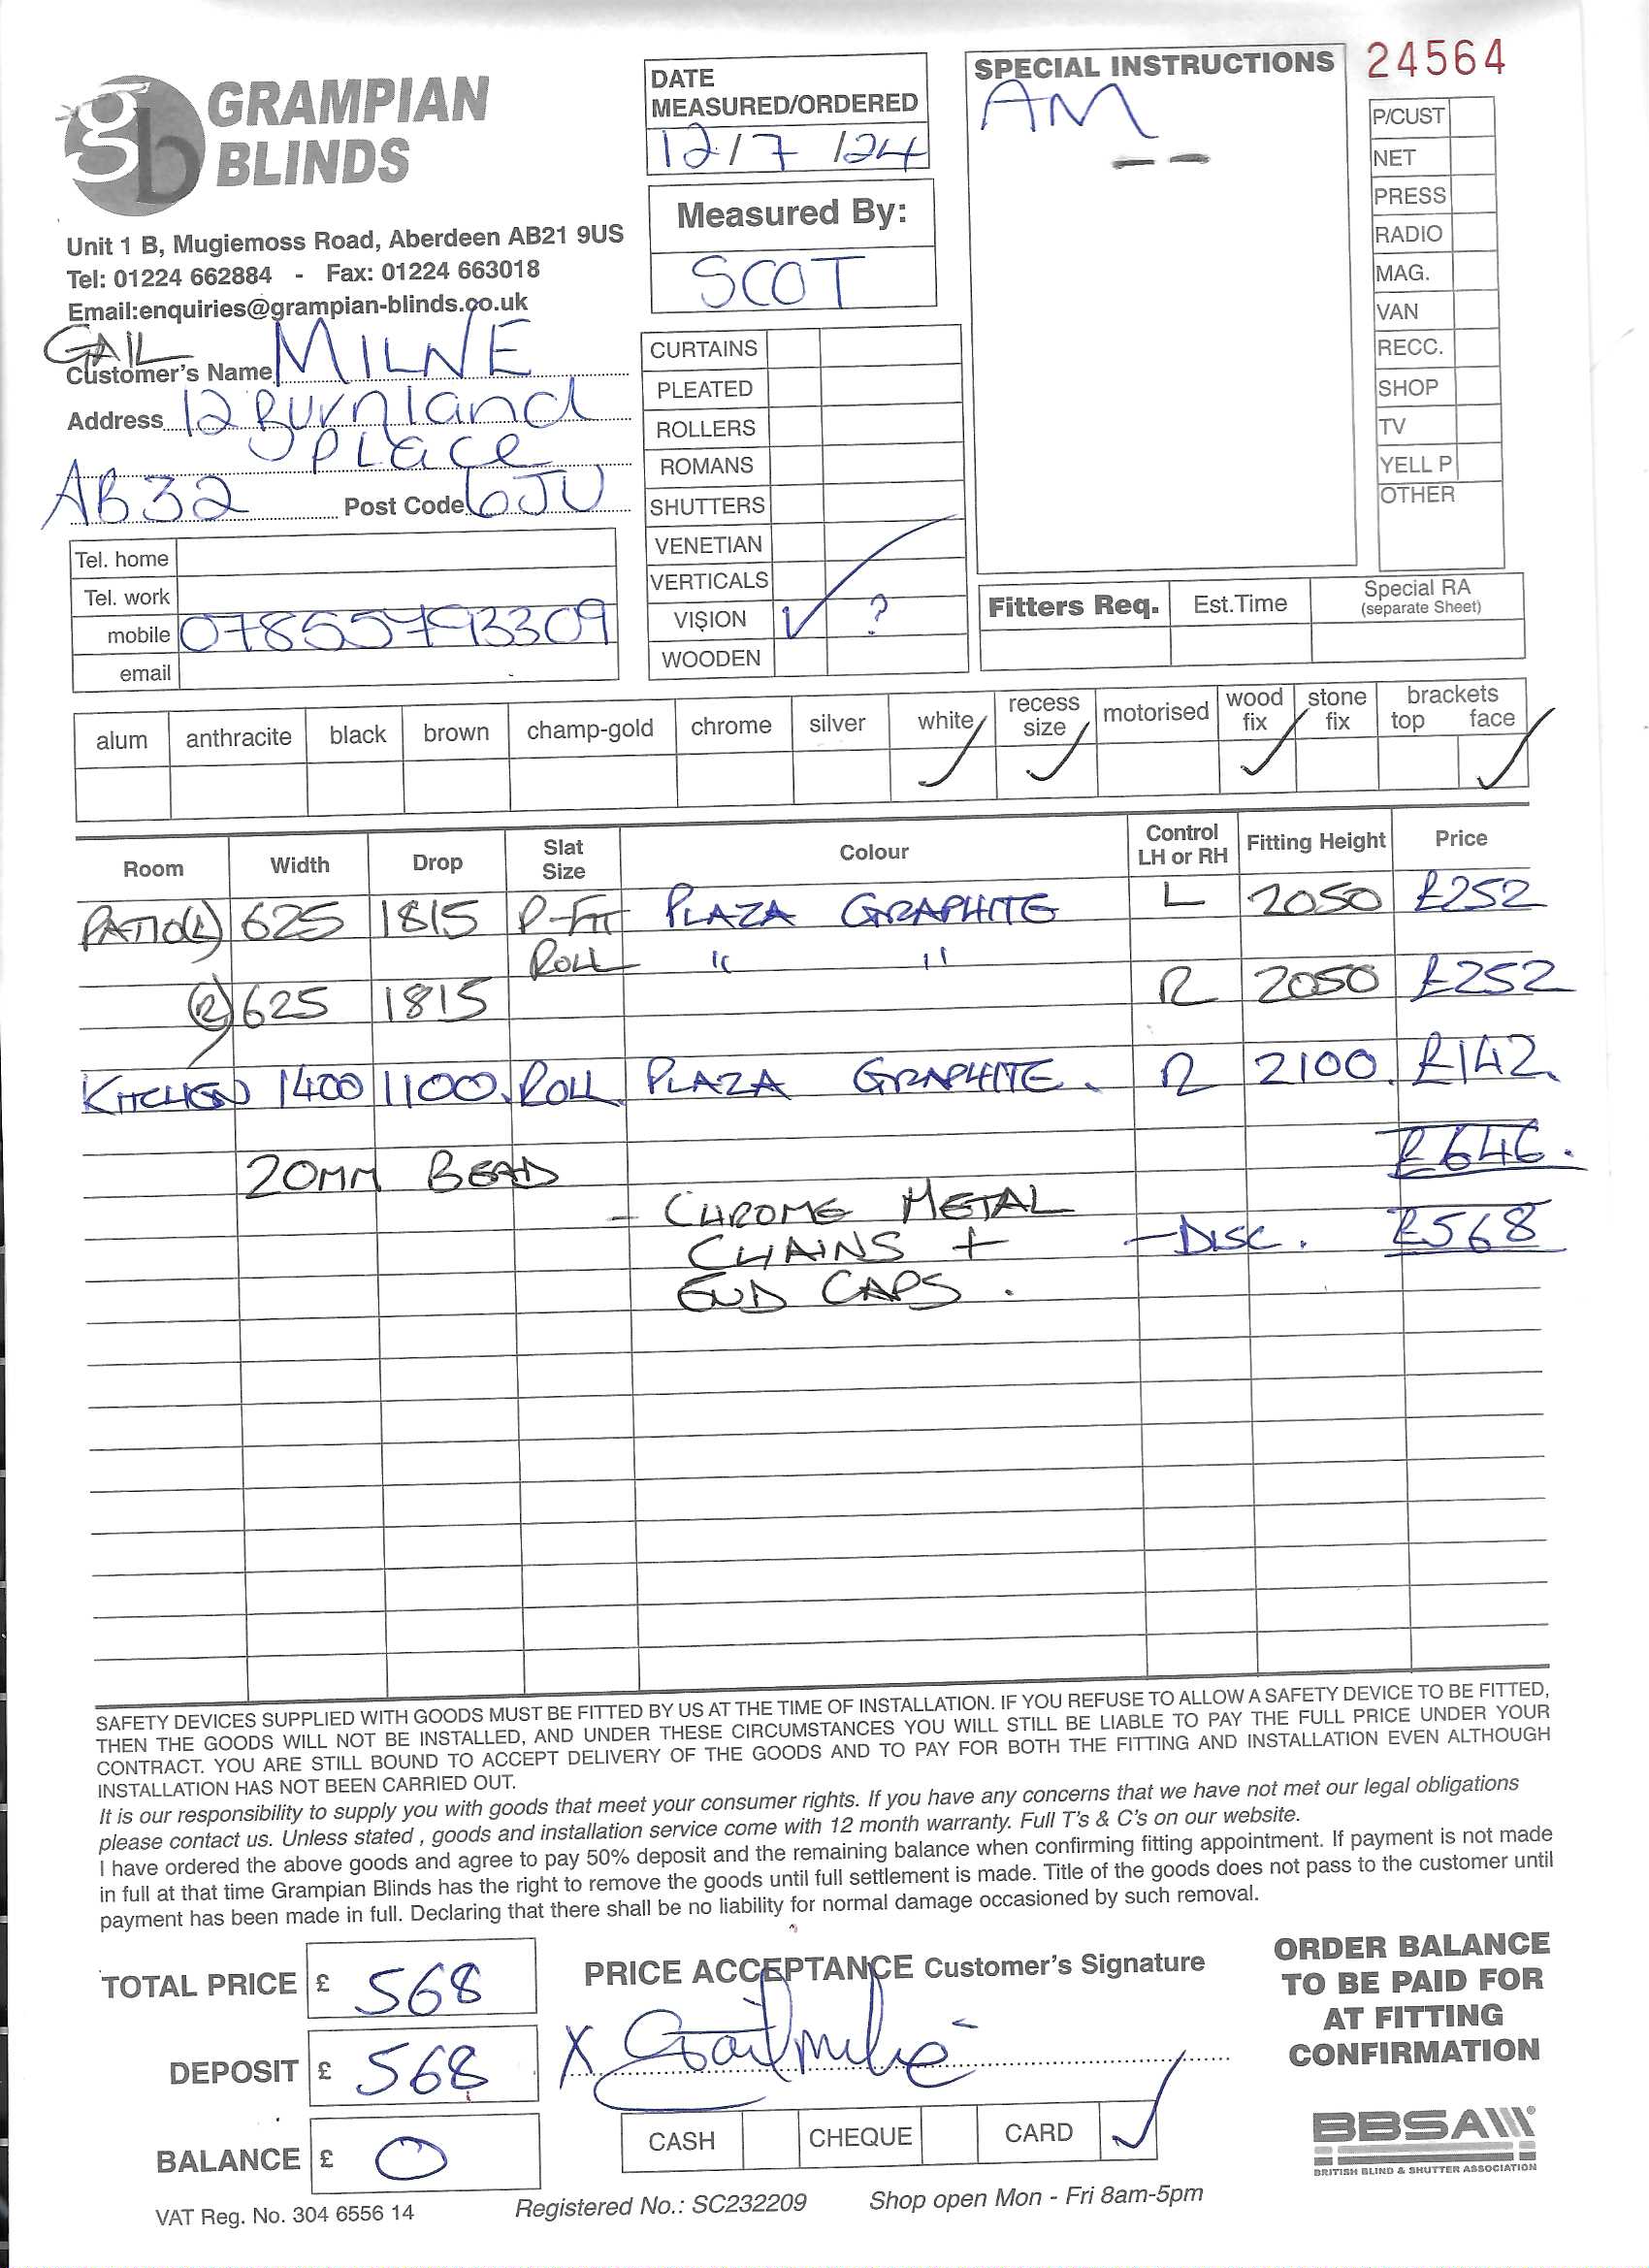 GRAMPIAN
BLINDS
Unit 1 B, Mugiemoss Road, Aberdeen AB21 9US
Tel: 01224 662884 - Fax: 01224 663018
Email:enquiries@grampian-blinds.co.uk
GAIL
Customer's Name MILNE
Address 12 Burnland
Place
AB32 Post Code 6JU
Tel. home
Tel. work
mobile
email
DATE
MEASURED/ORDERED
12/7/24
Measured By:
SCOT
CURTAINS
PLEATED
ROLLERS
ROMANS
SHUTTERS
VENETIAN
VERTICALS
VISION ✓ ?
WOODEN
SPECIAL INSTRUCTIONS
AM
24564
P/CUST
NET
PRESS
RADIO
MAG.
VAN
RECC.
SHOP
TV
YELL P
OTHER
Fitters Req. Est.Time Special RA
(separate Sheet)
alum anthracite black brown champ-gold chrome silver white recess size motorised wood fix stone fix brackets top face
✓ ✓ ✓ ✓
Room Width Drop Slat Size Colour Control LH or RH Fitting Height Price
PATIO (L) 625 1815 P-FIT PLAZA GRAPHITE L 2050 £252
ROLL " "
(R) 625 1815 R 2050 £252
KITCHEN 1400 1100. ROLL. PLAZA GRAPHITE. R 2100. £142.
20MM BEAD £646.
- CHROME METAL
CHAINS + - DISC. £568
END CAPS.
SAFETY DEVICES SUPPLIED WITH GOODS MUST BE FITTED BY US AT THE TIME OF INSTALLATION. IF YOU REFUSE TO ALLOW A SAFETY DEVICE TO BE FITTED,
THEN THE GOODS WILL NOT BE INSTALLED, AND UNDER THESE CIRCUMSTANCES YOU WILL STILL BE LIABLE TO PAY THE FULL PRICE UNDER YOUR
CONTRACT. YOU ARE STILL BOUND TO ACCEPT DELIVERY OF THE GOODS AND TO PAY FOR BOTH THE FITTING AND INSTALLATION EVEN ALTHOUGH
INSTALLATION HAS NOT BEEN CARRIED OUT.
It is our responsibility to supply you with goods that meet your consumer rights. If you have any concerns that we have not met our legal obligations
please contact us. Unless stated , goods and installation service come with 12 month warranty. Full T's & C's on our website.
I have ordered the above goods and agree to pay 50% deposit and the remaining balance when confirming fitting appointment. If payment is not made
in full at that time Grampian Blinds has the right to remove the goods until full settlement is made. Title of the goods does not pass to the customer until
payment has been made in full. Declaring that there shall be no liability for normal damage occasioned by such removal.
TOTAL PRICE £ 568
DEPOSIT £ 568
BALANCE £ 0
PRICE ACCEPTANCE Customer's Signature
X Gail Milne
CASH CHEQUE CARD ✓
ORDER BALANCE
TO BE PAID FOR
AT FITTING
CONFIRMATION
BBSA
BRITISH BLIND & SHUTTER ASSOCIATION
VAT Reg. No. 304 6556 14 Registered No.: SC232209 Shop open Mon - Fri 8am-5pm